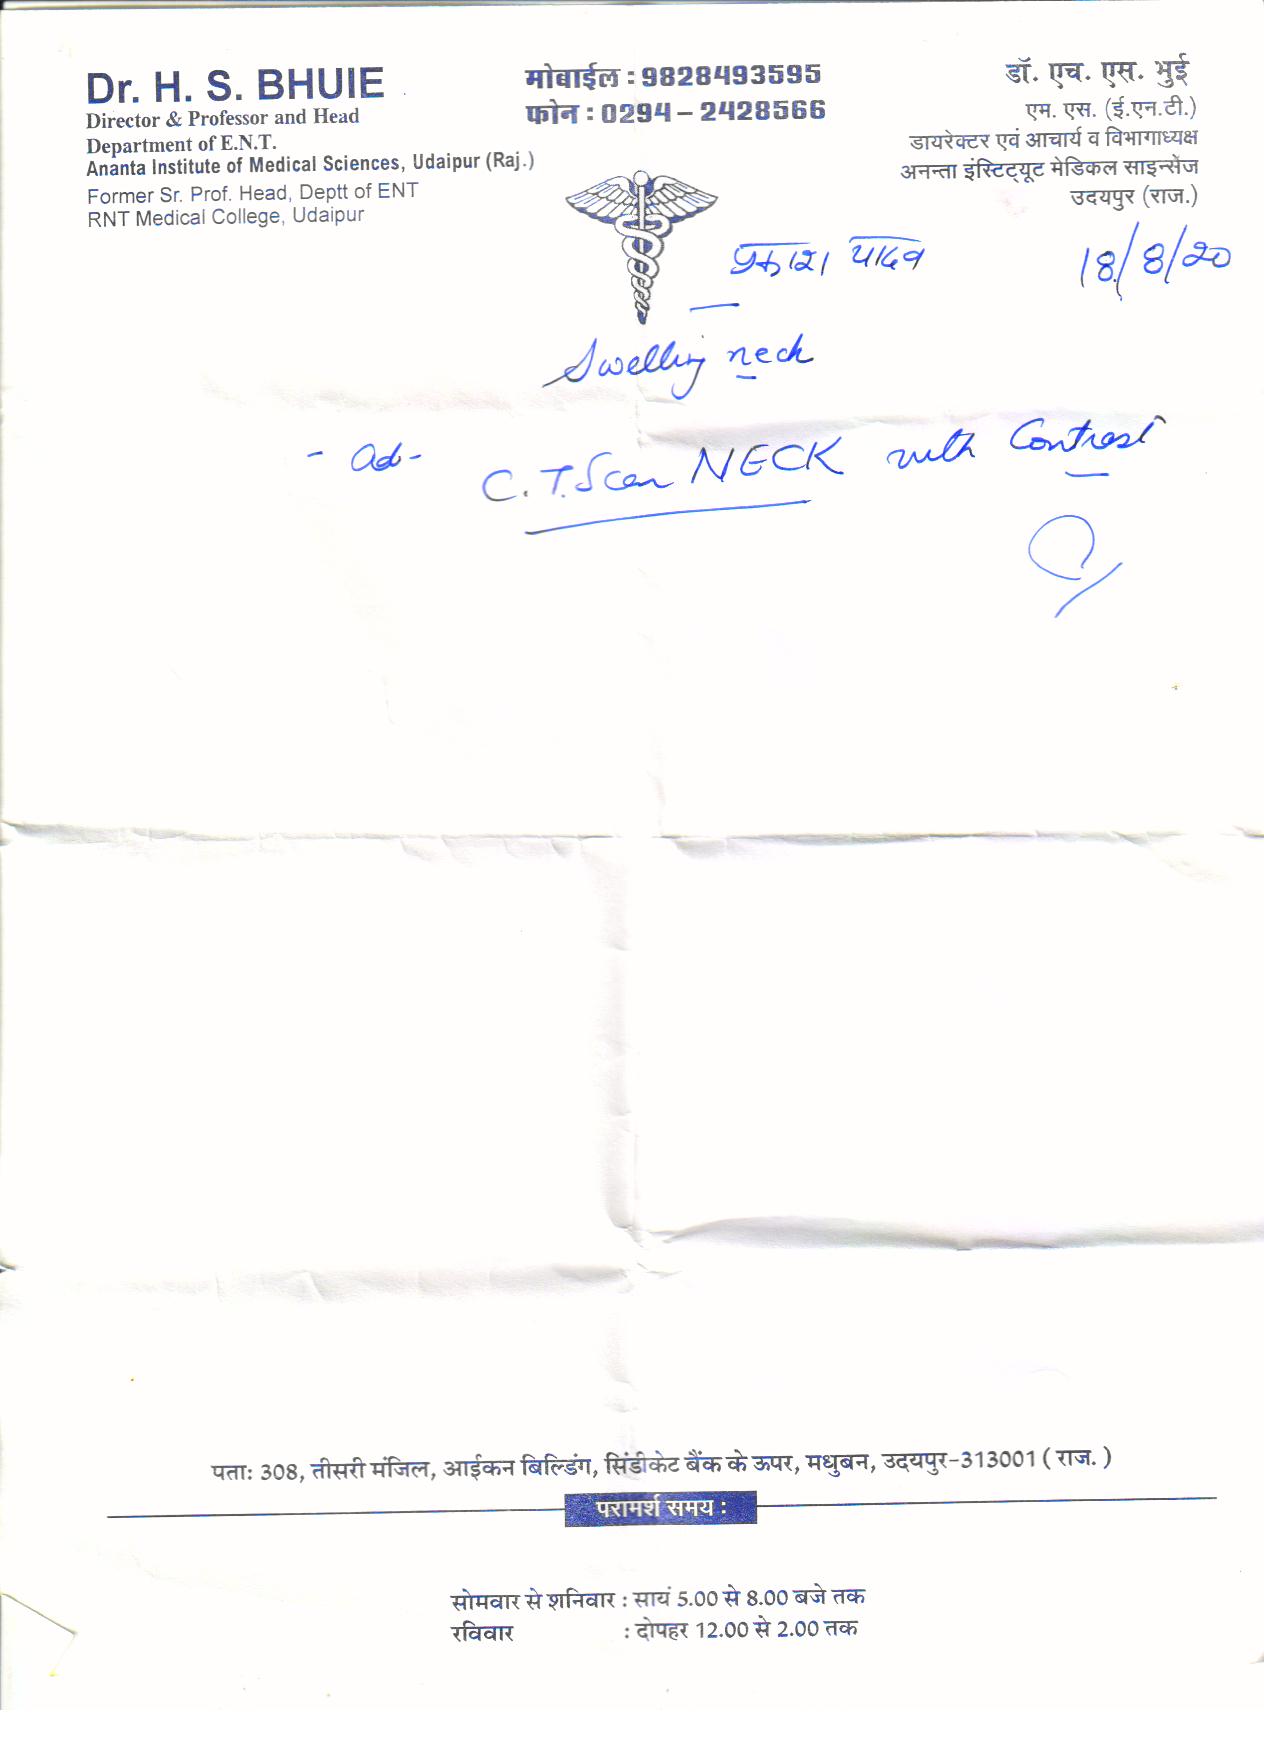 Dr. H. S. BHUIE
Director & Professor and Head
Department of E.N.T.
Ananta Institute of Medical Sciences, Udaipur (Raj.)
Former Sr. Prof. Head, Deptt of ENT
RNT Medical College, Udaipur
मोबाईल : 9828493595
फोन : 0294 – 2428566
डॉ. एच. एस. भुई
एम. एस. (ई.एन.टी.)
डायरेक्टर एवं आचार्य व विभागाध्यक्ष
अनन्ता इंस्टिट्यूट मेडिकल साइन्सेंज
उदयपुर (राज.)
प्रकाश यादव 18/8/20
Swelling neck
- Ad - C.T. Scan NECK with Contrast
पताः 308, तीसरी मंजिल, आईकन बिल्डिंग, सिंडीकेट बैंक के ऊपर, मधुबन, उदयपुर-313001 ( राज. )
परामर्श समय :
सोमवार से शनिवार : सायं 5.00 से 8.00 बजे तक
रविवार : दोपहर 12.00 से 2.00 तक